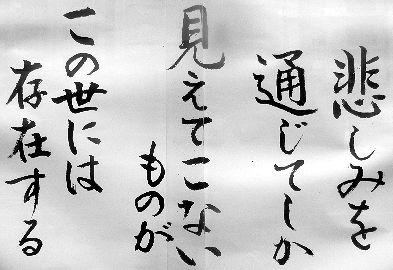 悲しみを
通じてしか
見えてこない
ものが
この世には
存在する